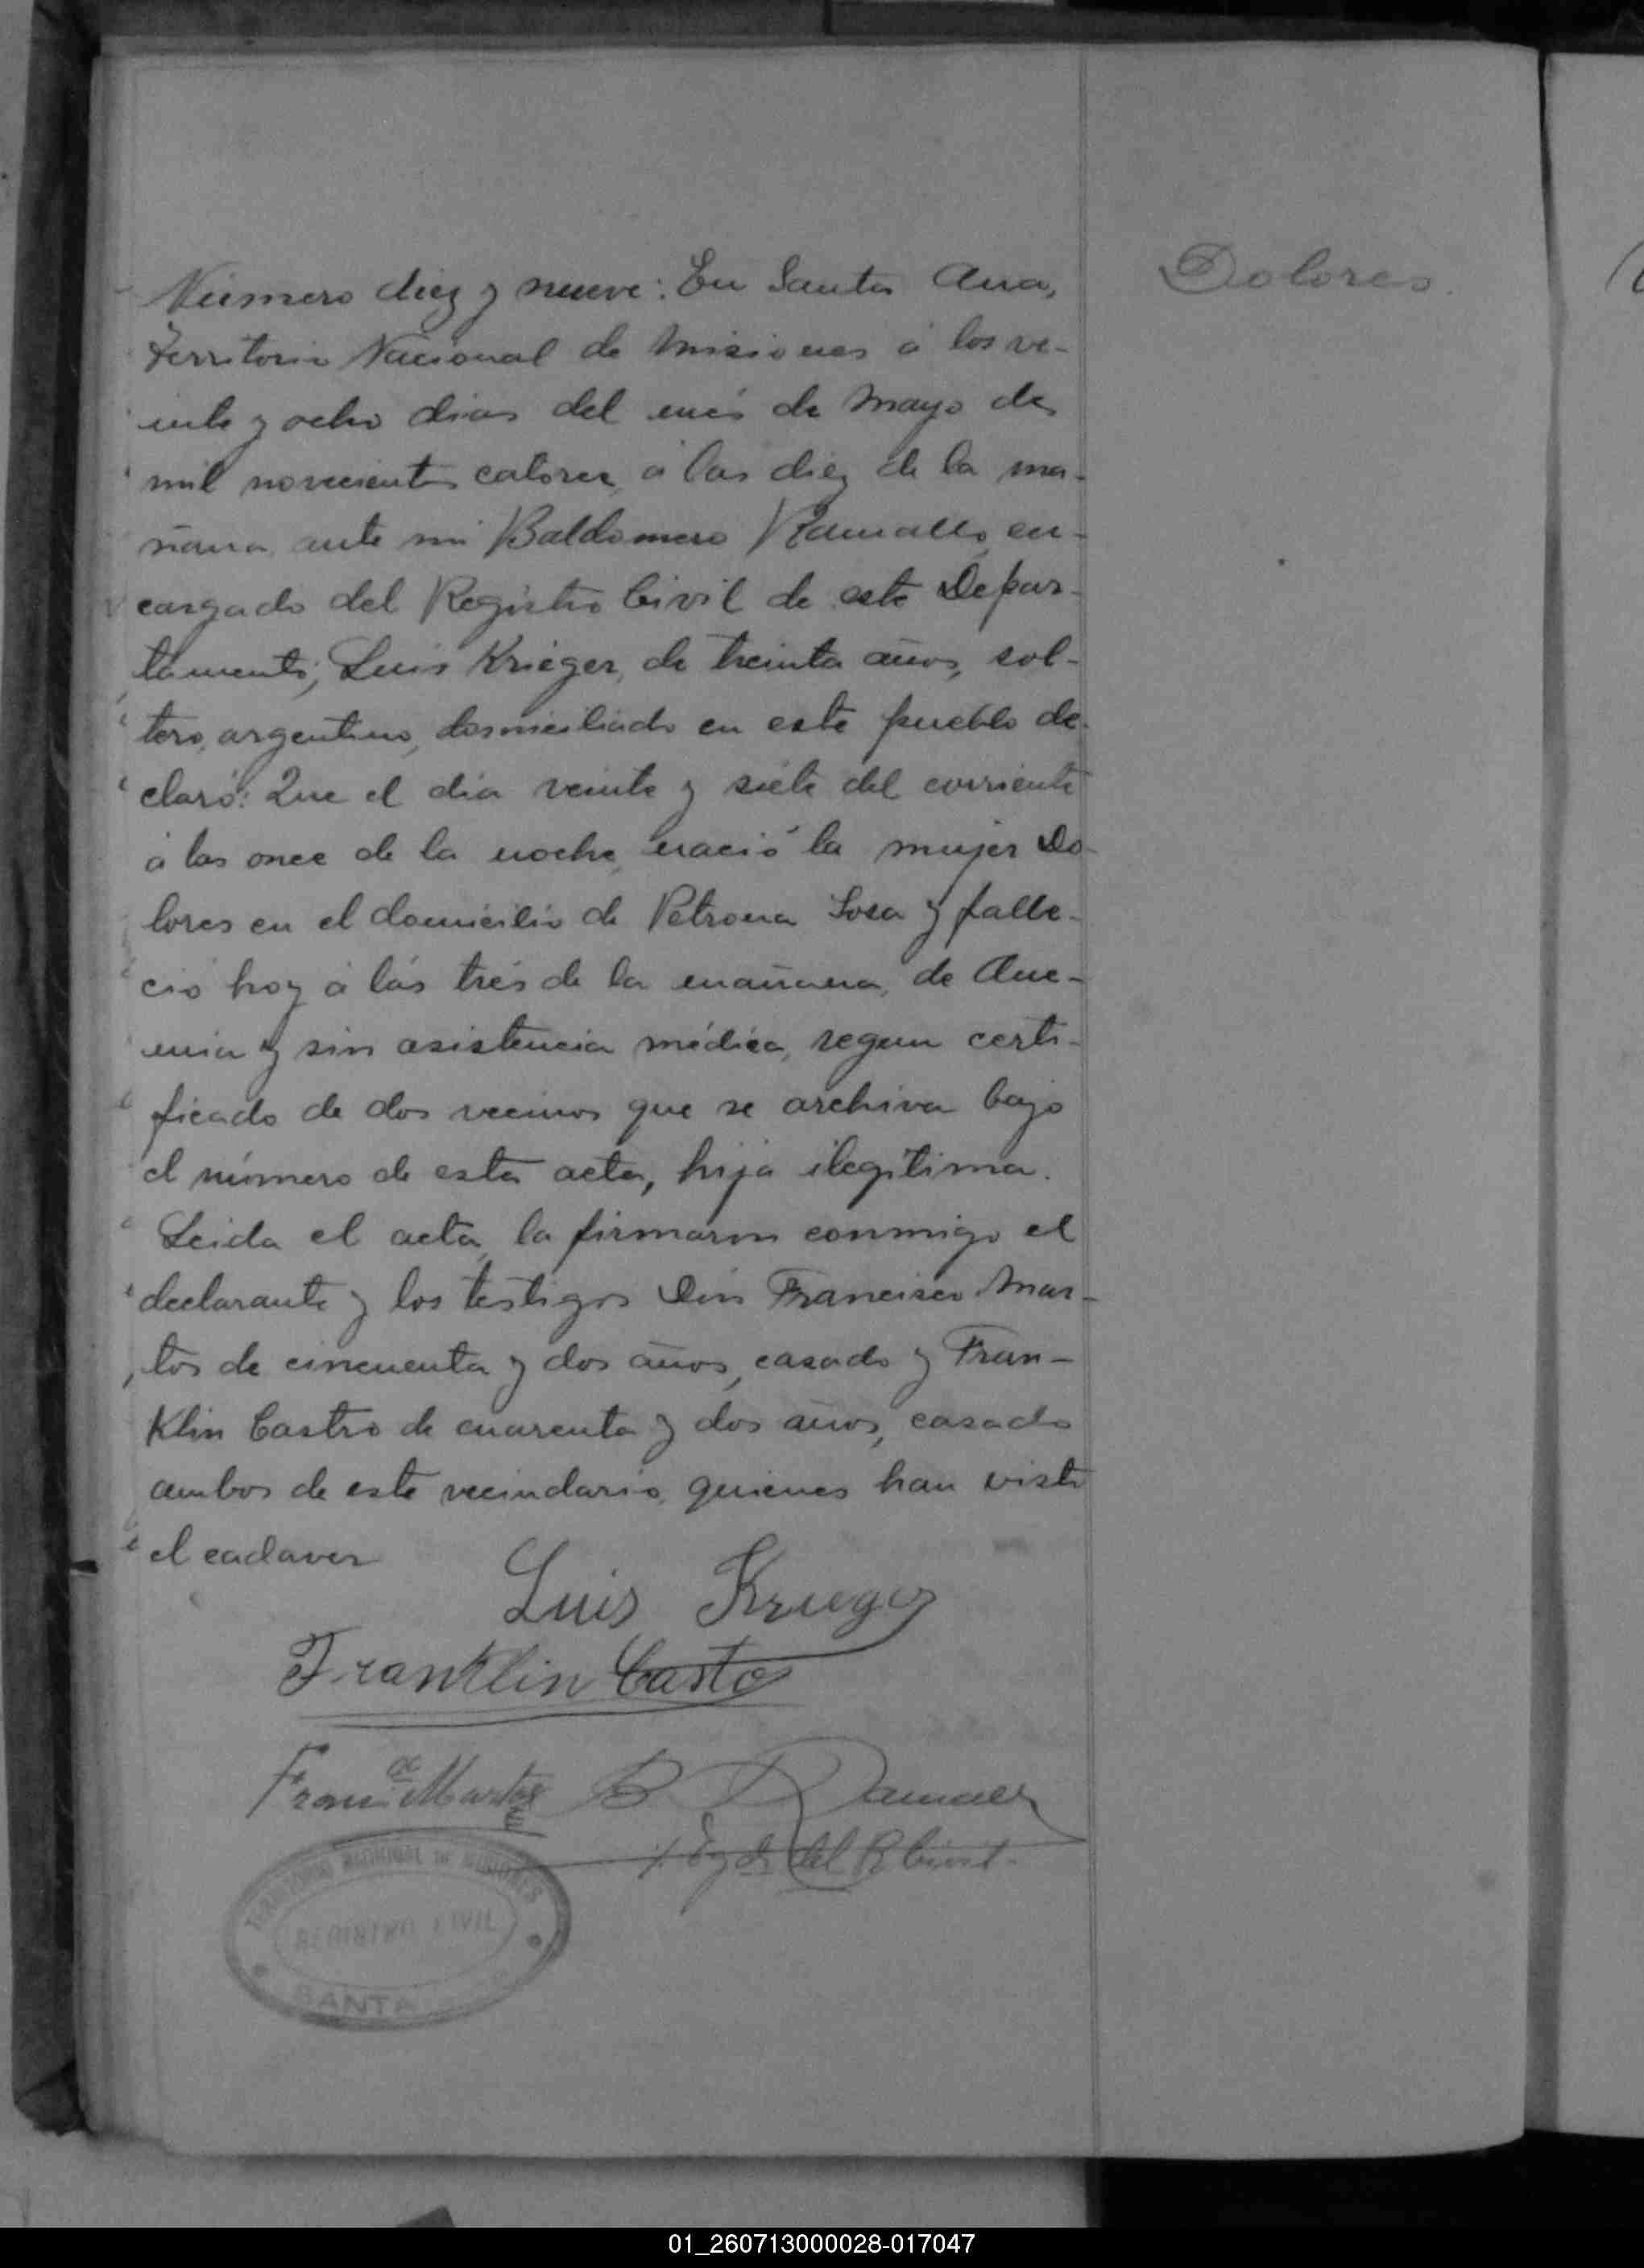 Dolores.
Número diez y nueve: En Santa Ana,
Territorio Nacional de Misiones á los ve-
inte y ocho dias del més de Mayo de
mil novecientos catorce, á las diez de la ma-
ñana, ante mi Baldomero Ramallo, en-
cargado del Registro Civil de este Depar-
tamento; Luis Krieger, de treinta años, sol-
tero, argentino, domiciliado en este pueblo de-
claró: Que el dia veinte y siete del corriente
á las once de la noche, nació la mujer Do-
lores en el domicilio de Petrona Sosa y falle-
ció hoy á las tres de la mañana, de Ane-
mia y sin asistencia médica, segun certi-
ficado de dos vecinos que se archiva bajo
el número de esta acta, hija ilegitima.
Leida el acta, la firmaron conmigo el
declarante y los testigos Don Francisco Mar-
tos de cincuenta y dos años, casado y Fran-
Klin Castro de cuarenta y dos años, casado
ambos de este vecindario, quienes han visto
el cadaver
Luis Krieger
Franklin Castro
Franco Martos B Ramallo
del R Civil
TERRITORIO NACIONAL DE MISIONES
REGISTRO CIVIL
SANTA
01_260713000028-017047